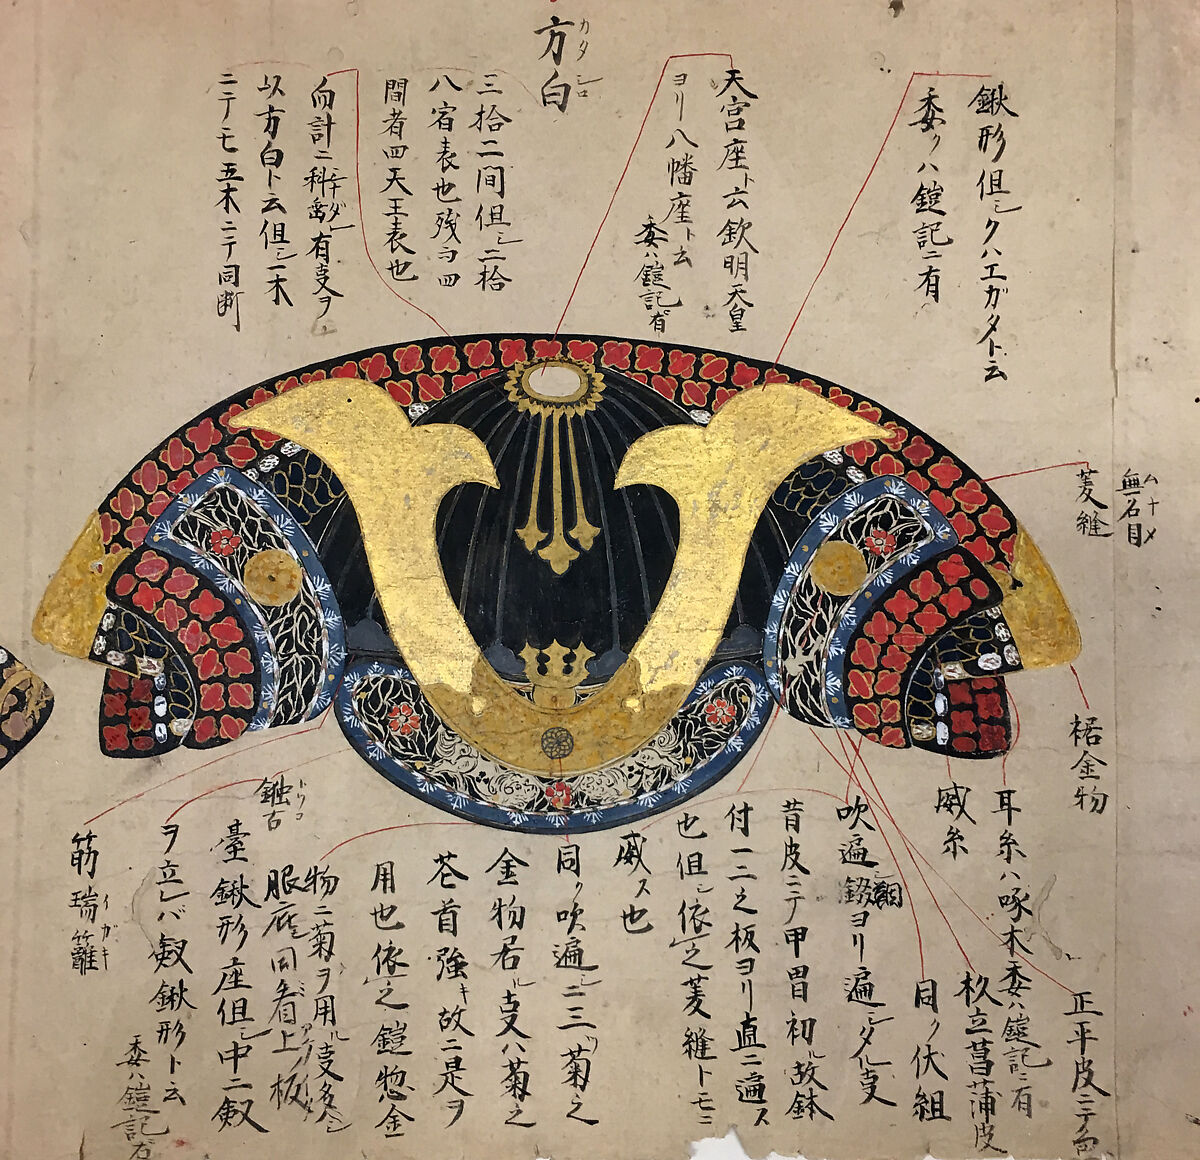 鍬形但シクハエガタト云
委クハ鎧記ニ有
天宮座ト云欽明天皇
ヨリ八幡座ト云
委ハ鎧記ニ有
方白
カタシロ
三拾二间但シ二拾
八宿表也残而四
間者四天王表也
向計ニ
有支ヲ
以方白ト云但シ一木
ニテモ五木ニテ同断
無名目
ムナメ
菱縫
裾金物
正平皮ニテ
耳糸ハ啄木委ハ鎧記ニ有
杦立菖蒲皮
威糸
同ク伏組
吹遍シ
ヨリ遍シタル支
昔皮ニテ甲冑初ル故鉢
付一二之板ヨリ直ニ遍ス
也但シ依之菱縫トモニ
威ス也
同ク吹遍シニ三ツ菊之
金物居ル支ハ菊之
花首強キ故ニ是ヲ
用也依之鎧惣金
物ニ菊ヲ用ル支多シ
眼庇同眉上板
トウコ
臺鍬形座但シ中ニ剱
ヲ立レバ剱鍬形ト云
委ハ鎧記ニ有
筋瑞籬
イガキ